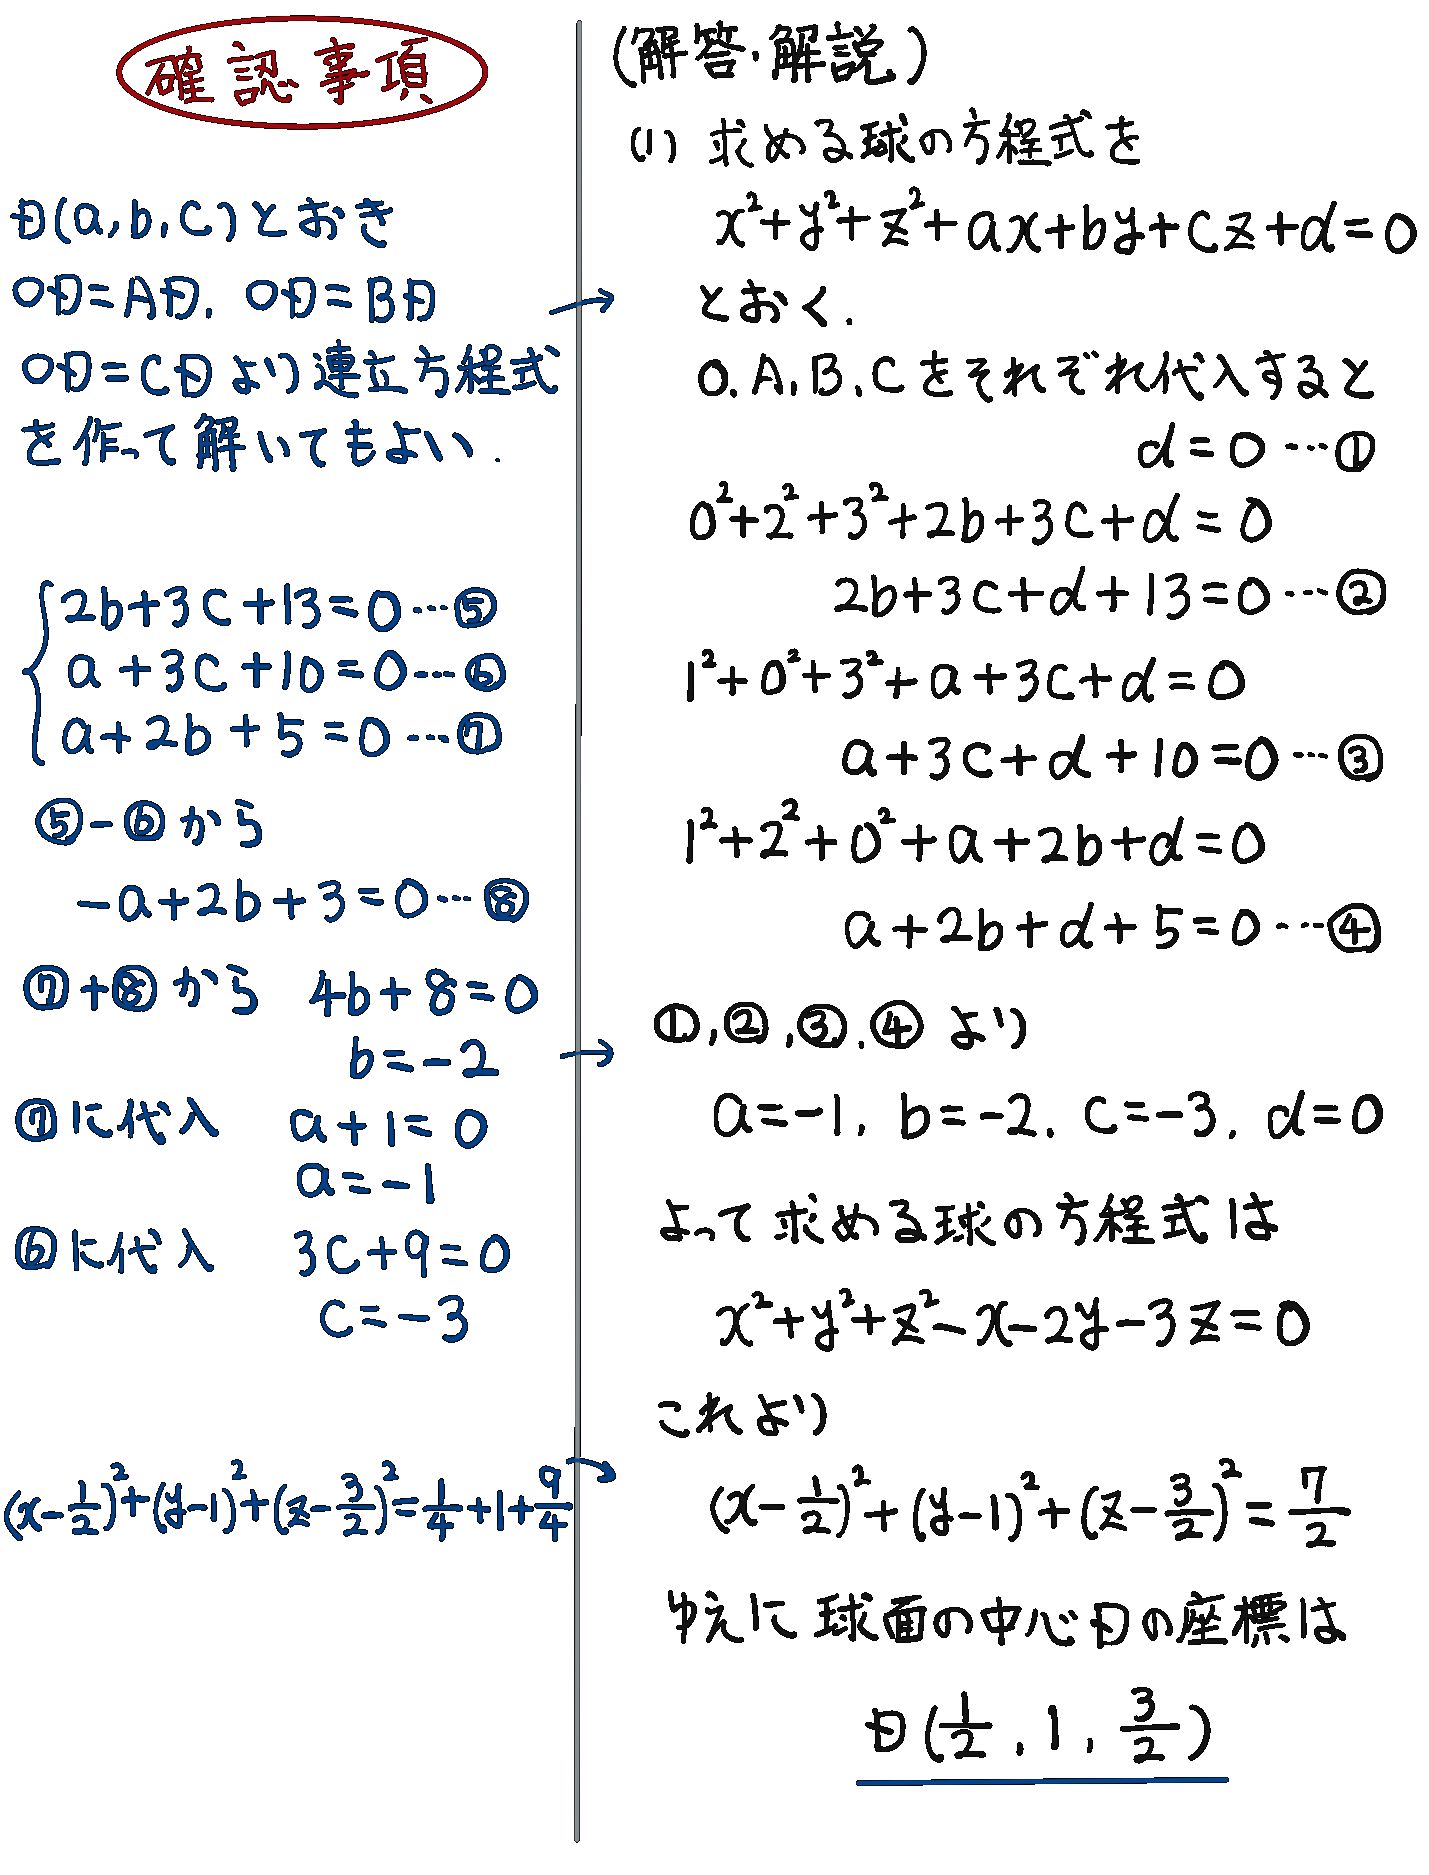 確認事項
D(a,b,c)とおき
OD=AD, OD=BD
OD=CDより連立方程式
を作って解いてもよい.
2b+3c+13=0…⑤
a+3c+10=0…⑥
a+2b+5=0…⑦
⑤-⑥から
-a+2b+3=0…⑧
⑦+⑧から 4b+8=0
b=-2
⑦に代入 a+1=0
a=-1
⑥に代入 3c+9=0
c=-3
(x-1/2)²+(y-1)²+(z-3/2)²=1/4+1+9/4
(解答・解説)
(1) 求める球の方程式を
x²+y²+z²+ax+by+cz+d=0
とおく.
O,A,B,Cをそれぞれ代入すると
d=0…①
0²+2²+3²+2b+3c+d=0
2b+3c+d+13=0…②
1²+0²+3²+a+3c+d=0
a+3c+d+10=0…③
1²+2²+0²+a+2b+d=0
a+2b+d+5=0…④
①,②,③,④より
a=-1, b=-2, c=-3, d=0
よって求める球の方程式は
x²+y²+z²-x-2y-3z=0
これより
(x-1/2)²+(y-1)²+(z-3/2)²=7/2
ゆえに球面の中心Dの座標は
D(1/2, 1, 3/2)